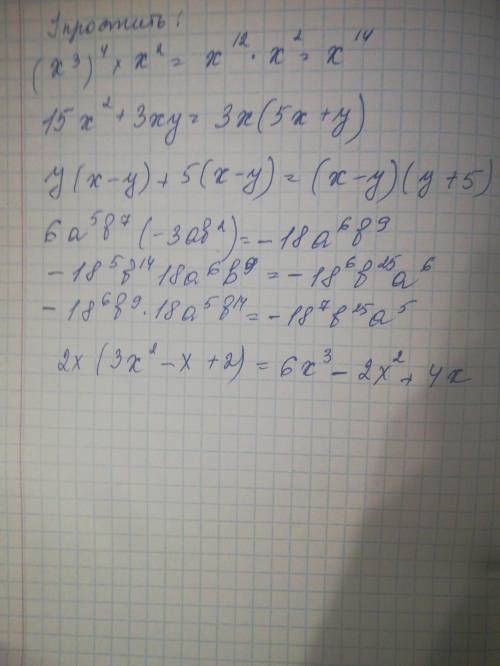 Упростить:
(x³)⁴ × x² = x¹² · x² = x¹⁴
15x² + 3xy = 3x(5x+y)
y(x-y) + 5(x-y) = (x-y)(y+5)
6a⁵b⁷(-3ab²) = -18a⁶b⁹
-18⁵b¹⁴18a⁶b⁹ = -18⁶b²⁵a⁶
-18⁶b⁹·18a⁵b¹⁴ = -18⁷b²⁵a⁵
2x(3x²-x+2) = 6x³ - 2x² + 4x